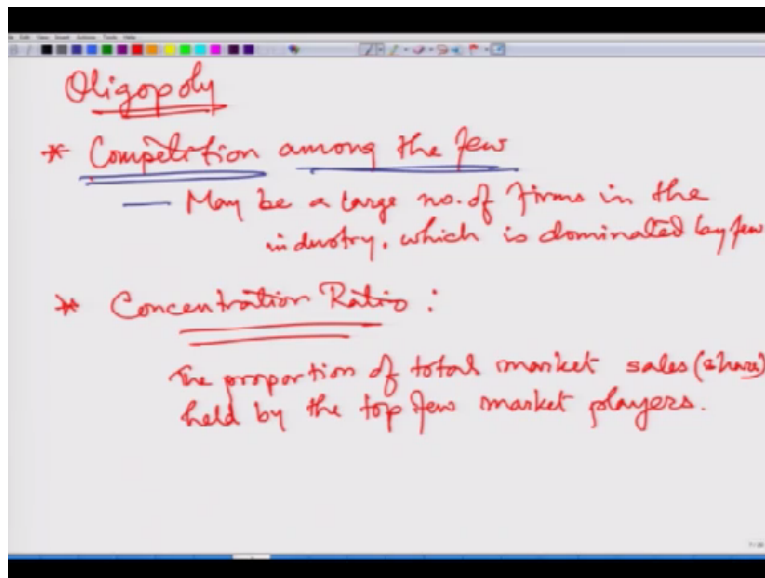 Oligopoly
* Competition among the few
— May be a large no. of firms in the
industry, which is dominated by few
* Concentration Ratio :
The proportion of total market sales (share)
held by the top few market players.